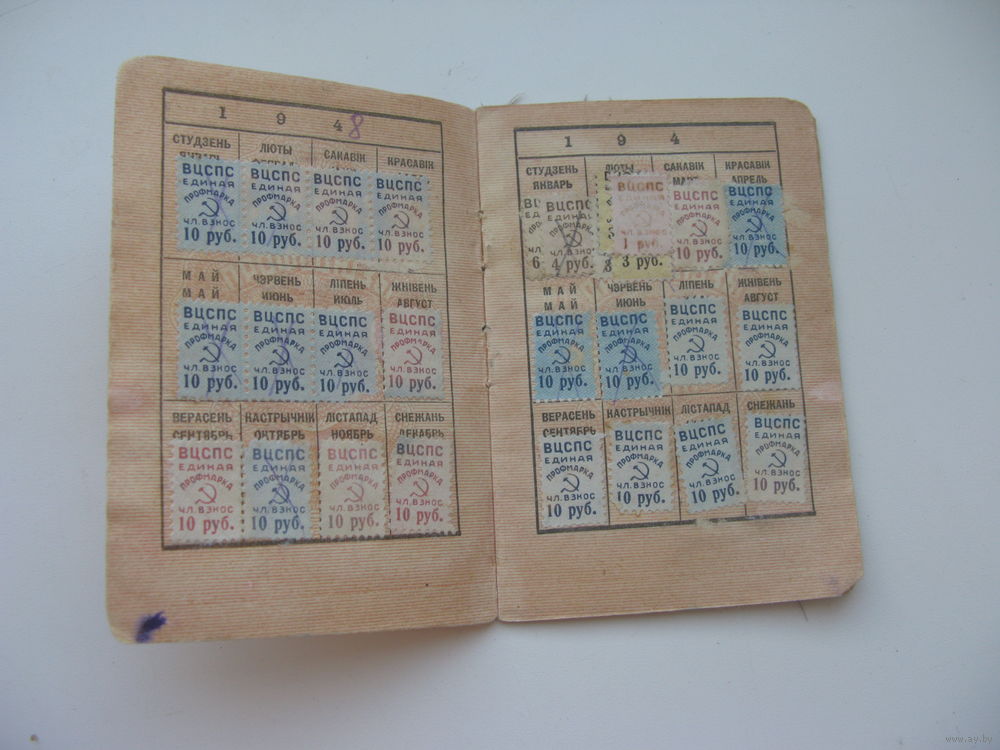 1 9 4 8
СТУДЗЕНЬ ЛЮТЫ САКАВІК КРАСАВІК
ВЦСПС ВЦСПС ВЦСПС ВЦСПС
ЕДИНАЯ ЕДИНАЯ ЕДИНАЯ ЕДИНАЯ
ПРОФМАРКА ПРОФМАРКА ПРОФМАРКА ПРОФМАРКА
ЧЛ. ВЗНОС ЧЛ. ВЗНОС ЧЛ. ВЗНОС ЧЛ. ВЗНОС
10 руб. 10 руб. 10 руб. 10 руб.
МАЙ ЧЭРВЕНЬ ЛІПЕНЬ ЖНІВЕНЬ
МАЙ ИЮНЬ ИЮЛЬ АВГУСТ
ВЦСПС ВЦСПС ВЦСПС ВЦСПС
ЕДИНАЯ ЕДИНАЯ ЕДИНАЯ ЕДИНАЯ
ПРОФМАРКА ПРОФМАРКА ПРОФМАРКА ПРОФМАРКА
ЧЛ. ВЗНОС ЧЛ. ВЗНОС ЧЛ. ВЗНОС ЧЛ. ВЗНОС
10 руб. 10 руб. 10 руб. 10 руб.
ВЕРАСЕНЬ КАСТРЫЧНІК ЛІСТАПАД СНЕЖАНЬ
СЕНТЯБРЬ ОКТЯБРЬ НОЯБРЬ ДЕКАБРЬ
ВЦСПС ВЦСПС ВЦСПС ВЦСПС
ЕДИНАЯ ЕДИНАЯ ЕДИНАЯ ЕДИНАЯ
ПРОФМАРКА ПРОФМАРКА ПРОФМАРКА ПРОФМАРКА
ЧЛ. ВЗНОС ЧЛ. ВЗНОС ЧЛ. ВЗНОС ЧЛ. ВЗНОС
10 руб. 10 руб. 10 руб. 10 руб.
1 9 4
СТУДЗЕНЬ ЛЮТЫ САКАВІК КРАСАВІК
ЯНВАРЬ АПРЕЛЬ
ВЦСПС ВЦСПС ВЦСПС
ЕДИНАЯ ЕДИНАЯ ЕДИНАЯ
ПРОФМАРКА ПРОФМАРКА ПРОФМАРКА
ЧЛ. ВЗНОС ЧЛ. ВЗНОС
6 4 руб. 3 руб. 1 руб. 10 руб. 10 руб.
МАЙ ЧЭРВЕНЬ ЛІПЕНЬ ЖНІВЕНЬ
МАЙ ИЮНЬ АВГУСТ
ВЦСПС ВЦСПС ВЦСПС ВЦСПС
ЕДИНАЯ ЕДИНАЯ ЕДИНАЯ ЕДИНАЯ
ПРОФМАРКА ПРОФМАРКА ПРОФМАРКА ПРОФМАРКА
ЧЛ. ВЗНОС ЧЛ. ВЗНОС ЧЛ. ВЗНОС ЧЛ. ВЗНОС
10 руб. 10 руб. 10 руб. 10 руб.
ВЕРАСЕНЬ КАСТРЫЧНІК ЛІСТАПАД СНЕЖАНЬ
СЕНТЯБРЬ
ВЦСПС ВЦСПС ВЦСПС ВЦСПС
ЕДИНАЯ ЕДИНАЯ ЕДИНАЯ ЕДИНАЯ
ПРОФМАРКА ПРОФМАРКА ПРОФМАРКА ПРОФМАРКА
ЧЛ. ВЗНОС ЧЛ. ВЗНОС ЧЛ. ВЗНОС ЧЛ. ВЗНОС
10 руб. 10 руб. 10 руб. 10 руб.
www.ay.by